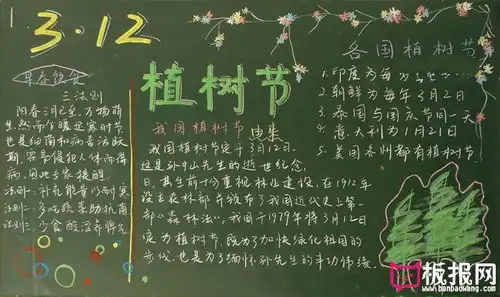 3·12
早春饮食
三法则
阳春三月已至，万物萌
生，然而乍暖还寒时节
也是细菌和病毒活跃
期，容易侵犯人体而得
病，因此专家提醒
法则一：补充能量巧耐寒
法则二：多吃蔬菜助抗菌
法则三：少食酸涩养脾元
植树节
我国植树节由来
我国植树节定于3月12日，
这是孙中山先生的逝世纪念
日，其生前十分重视林业建设，在1912年
设立农林部并颁布了我国近代史上第一
部《森林法》，我国于1979年将3月12日
定为植树节，既为了加快绿化祖国的
步伐，也是为了缅怀孙先生的丰功伟绩。
各国植树节
1. 印度为每
2. 朝鲜为每年3月2日
3. 泰国与国庆节同一天
4. 意大利为11月21日
5. 美国各州都有植树节
板报网
www.banbaowang.com